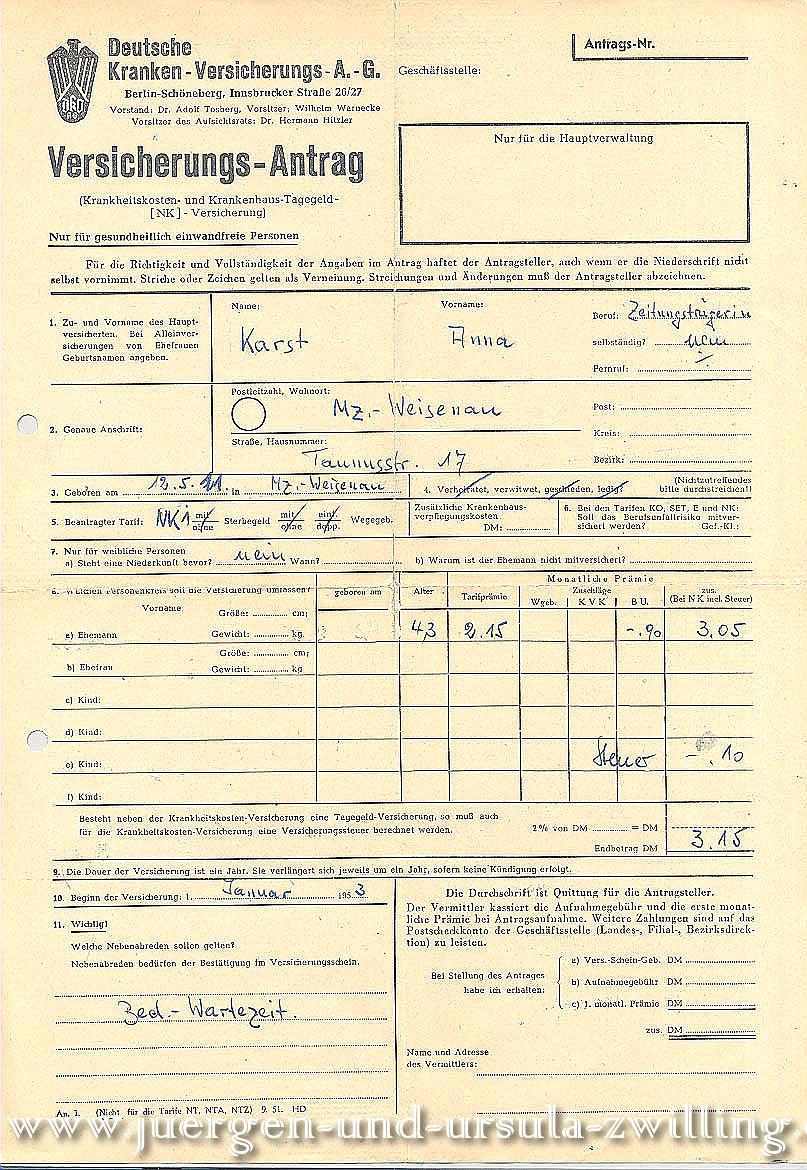 Deutsche
Kranken-Versicherungs-A.-G.
Berlin-Schöneberg, Innsbrucker Straße 26/27
Vorstand: Dr. Adolf Tosberg, Vorsitzer; Wilhelm Warnecke
Vorsitzer des Aufsichtsrats: Dr. Hermann Hitzler
Geschäftsstelle:
Antrags-Nr.
Nur für die Hauptverwaltung
Versicherungs-Antrag
(Krankheitskosten- und Krankenhaus-Tagegeld-
[NK]-Versicherung)
Nur für gesundheitlich einwandfreie Personen
Für die Richtigkeit und Vollständigkeit der Angaben im Antrag haftet der Antragsteller, auch wenn er die Niederschrift nicht
selbst vornimmt. Striche oder Zeichen gelten als Verneinung. Streichungen und Änderungen muß der Antragsteller abzeichnen.
1. Zu- und Vorname des Haupt-
versicherten. Bei Alleinver-
sicherungen von Ehefrauen
Geburtsnamen angeben.
Name:
Karst
Vorname:
Anna
Beruf: Zeitungsträgerin
selbständig? nein
Fernruf:
2. Genaue Anschrift:
Postleitzahl, Wohnort:
Mz.-Weisenau
Straße, Hausnummer:
Taunusstr. 17
Post:
Kreis:
Bezirk:
3. Geboren am 12.5. in Mz.-Weisenau
4. Verheiratet, verwitwet, geschieden, ledig?
(Nichtzutreffendes
bitte durchstreichen!)
5. Beantragter Tarif: NK 1 mit/ohne Sterbegeld mit/ohne einf./dopp. Wegegeb.
Zusätzliche Krankenhaus-
verpflegungskosten
DM:
6. Bei den Tarifen KO, SET, E und NK:
Soll das Berufsunfallrisiko mitver-
sichert werden? Gef.-Kl.:
7. Nur für weibliche Personen
a) Steht eine Niederkunft bevor? nein Wann? b) Warum ist der Ehemann nicht mitversichert?
Welchen Personenkreis soll die Versicherung umfassen?
Vorname
geboren am
Alter
Monatliche Prämie
Tarifprämie
Zuschläge
Wgeb. KVK B.U.
zus.
(Bei NK incl. Steuer)
Größe: cm;
a) Ehemann Gewicht: kg 43 2.15 -.90 3.05
Größe: cm;
b) Ehefrau Gewicht: kg
c) Kind:
d) Kind:
e) Kind: Steuer -.10
f) Kind:
Besteht neben der Krankheitskosten-Versicherung eine Tagegeld-Versicherung, so muß auch
für die Krankheitskosten-Versicherung eine Versicherungssteuer berechnet werden.
2% von DM = DM
Endbetrag DM 3.15
9. Die Dauer der Versicherung ist ein Jahr. Sie verlängert sich jeweils um ein Jahr, sofern keine Kündigung erfolgt.
10. Beginn der Versicherung: 1. Januar 1953
11. Wichtig!
Welche Nebenabreden sollen gelten?
Nebenabreden bedürfen der Bestätigung im Versicherungsschein.
Bed.-Wartezeit.
Die Durchschrift ist Quittung für die Antragsteller.
Der Vermittler kassiert die Aufnahmegebühr und die erste monat-
liche Prämie bei Antragsaufnahme. Weitere Zahlungen sind auf das
Postscheckkonto der Geschäftsstelle (Landes-, Filial-, Bezirksdirek-
tion) zu leisten.
Bei Stellung des Antrages
habe ich erhalten:
a) Vers.-Schein-Geb. DM
b) Aufnahmegebühr DM
c) 1. monatl. Prämie DM
zus. DM
Name und Adresse
des Vermittlers:
An. 1. (Nicht für die Tarife NT, NTA, NTZ) 9. 51. HD
www.juergen-und-ursula-zwilling.de